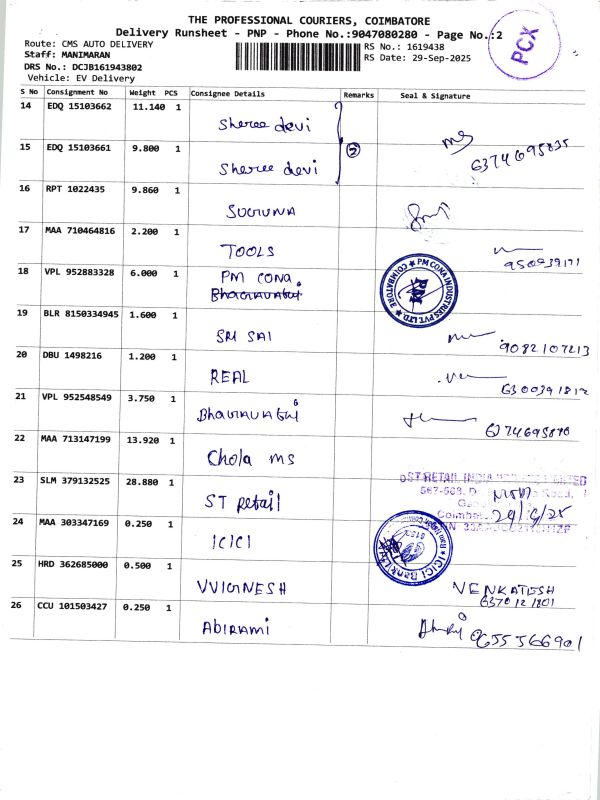 THE PROFESSIONAL COURIERS, COIMBATORE
Delivery Runsheet - PNP - Phone No.:9047080280 - Page No.:2
PCX
Route: CMS AUTO DELIVERY
Staff: MANIMARAN
DRS No.: DCJB161943802
Vehicle: EV Delivery
RS No.: 1619438
RS Date: 29-Sep-2025
S No Consignment No Weight PCS Consignee Details Remarks Seal & Signature
14 EDQ 15103662 11.140 1
Sheree devi
15 EDQ 15103661 9.800 1 2
Sheree devi 6374695835
16 RPT 1022435 9.860 1
SUGUNA
17 MAA 710464816 2.200 1
TOOLS
18 VPL 952883328 6.000 1 PM CONA
PM CONA INDUSTRIES PVT LTD. COIMBATORE
PM
19 BLR 8150334945 1.600 1
SRI SAI 9082107213
20 DBU 1498216 1.200 1
REAL 6300391812
21 VPL 952548549 3.750 1
22 MAA 713147199 13.920 1
Chola ms
23 SLM 379132525 28.880 1
ST Retail
24 MAA 303347169 0.250 1
ICICI
ICICI Bank
25 HRD 362685000 0.500 1
VVIGNESH VENKATESH
26 CCU 101503427 0.250 1
ABIRAMI